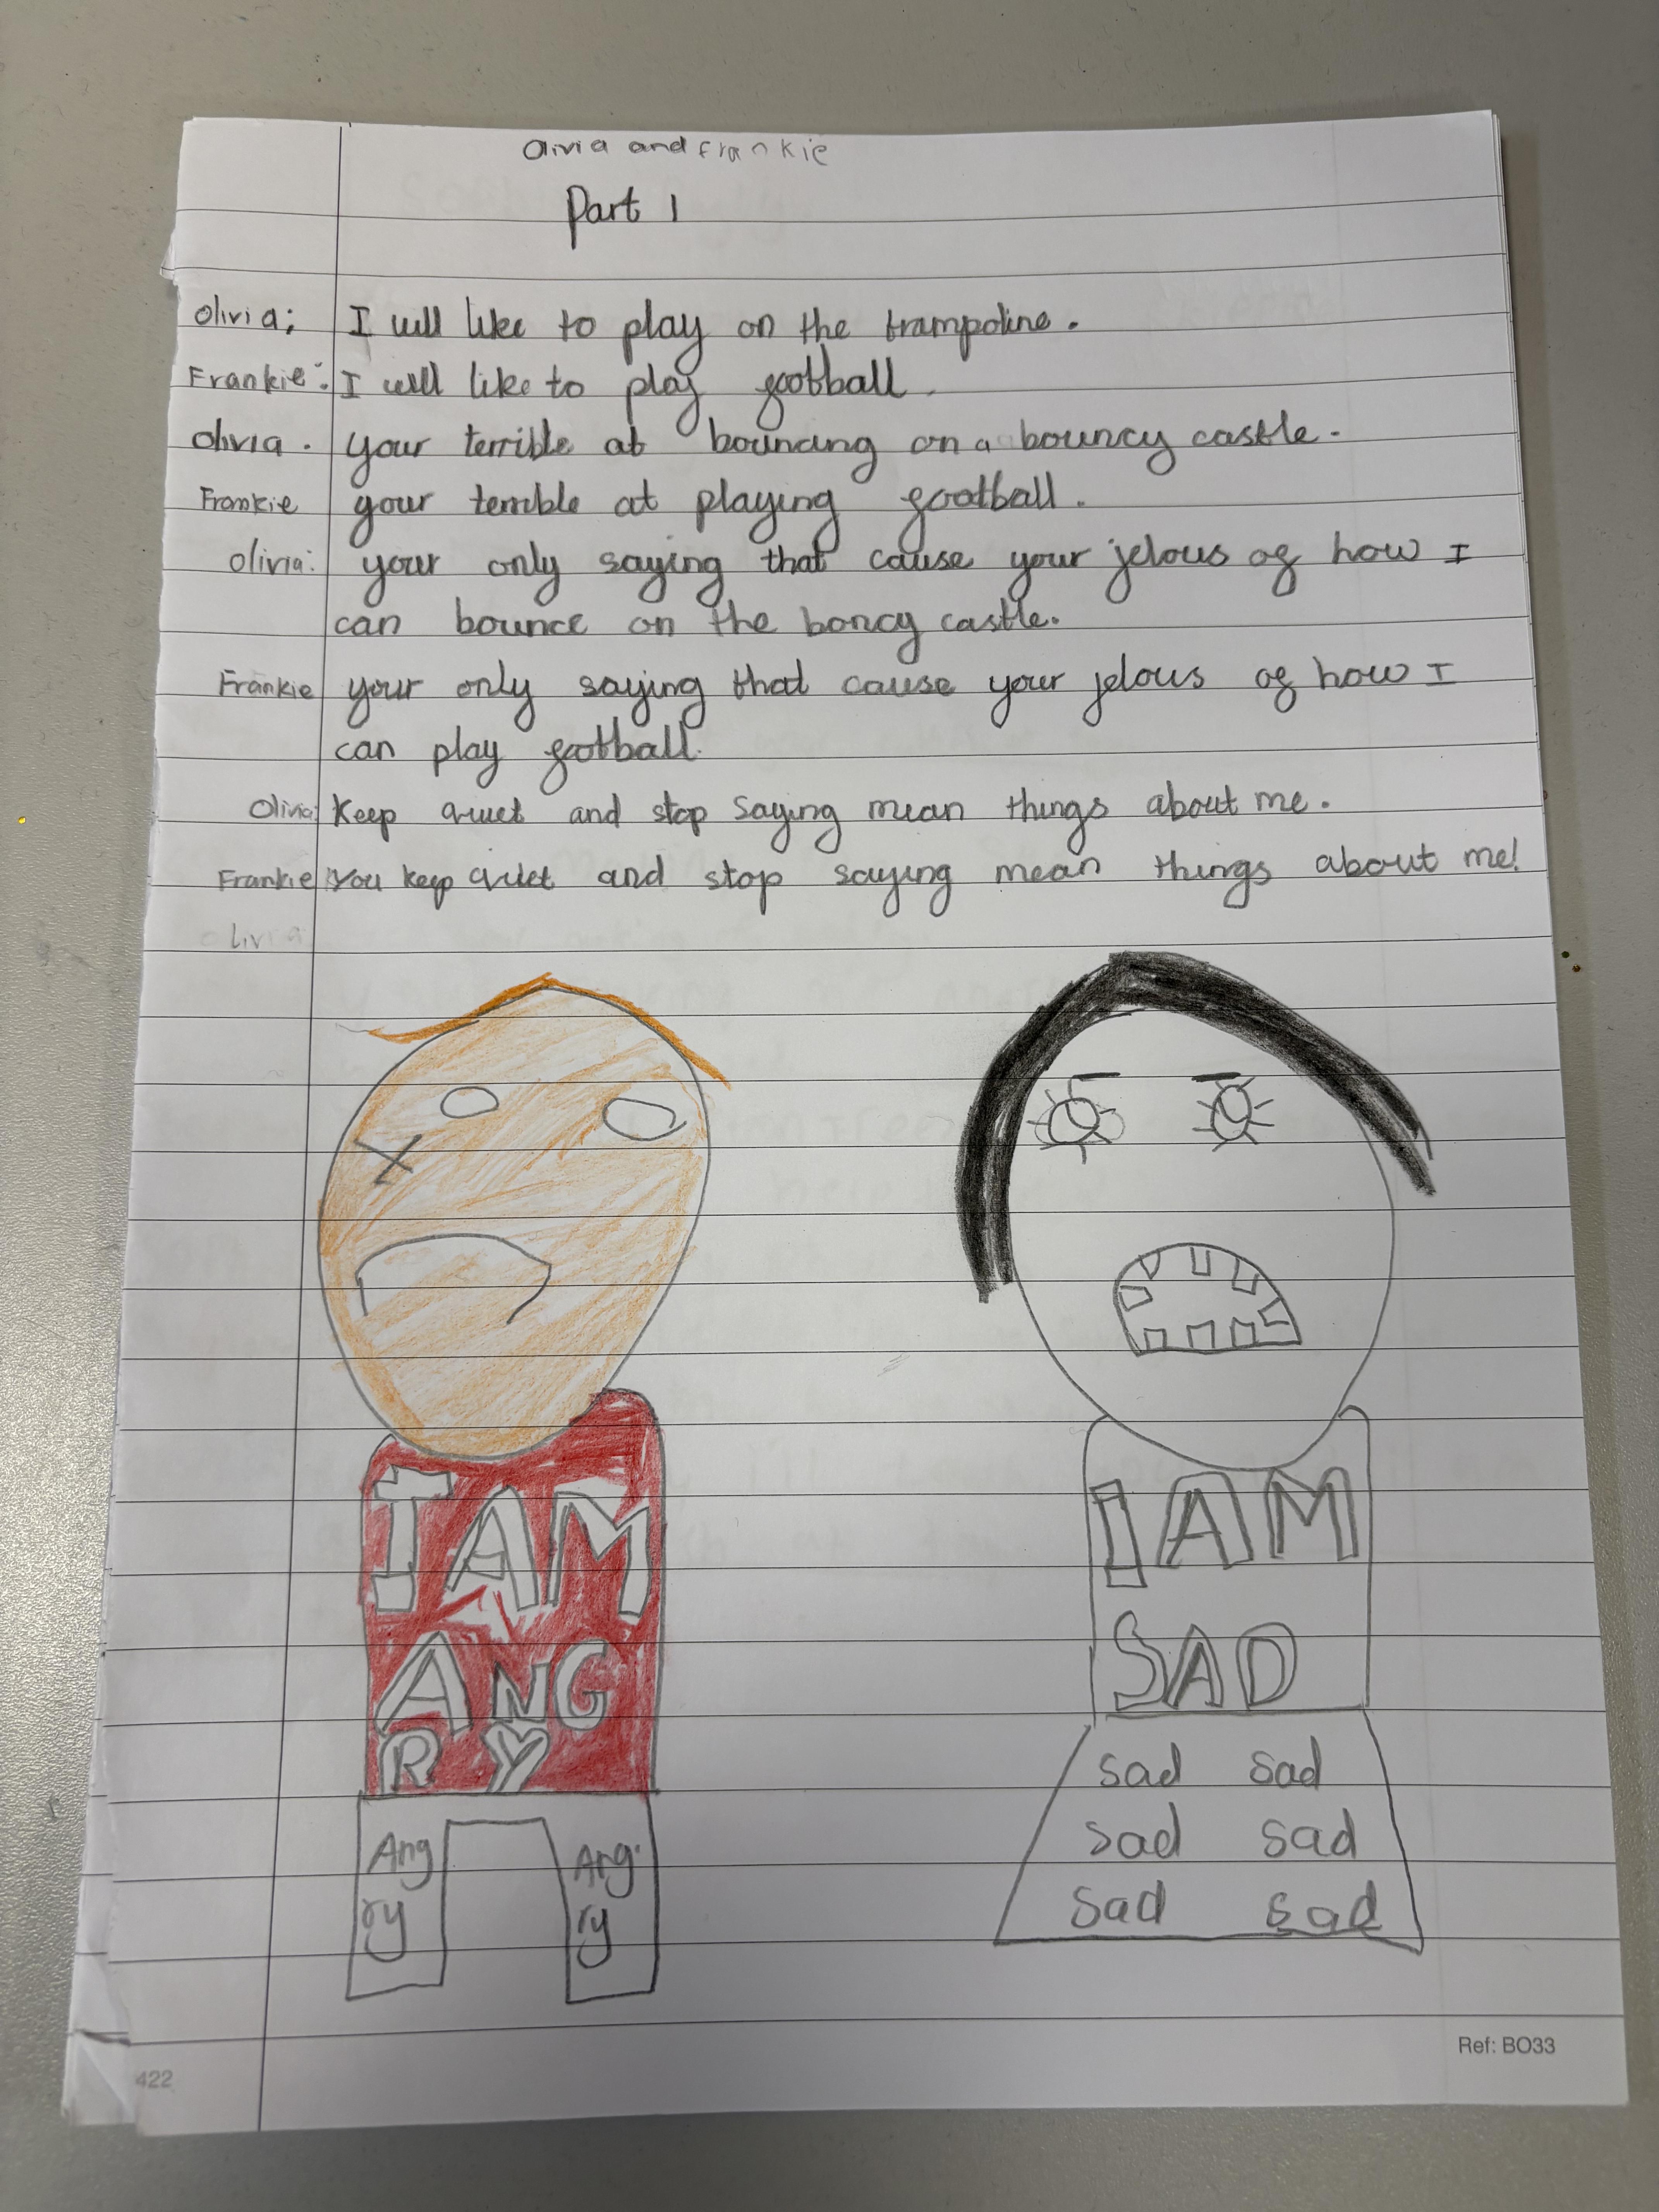 Olivia and Frankie
Part 1
Olivia: I will like to play on the trampoline.
Frankie: I will like to play football.
Olivia. your terrible at bouncing on a bouncy castle.
Frankie your terrible at playing football.
Olivia: your only saying that cause your jelous of how I
can bounce on the boncy castle.
Frankie your only saying that cause your jelous of how I
can play football.
Olivia: Keep quiet and stop saying mean things about me.
Frankie: You keep quiet and stop saying mean things about me!
olivia
I AM
ANG
RY
Ang
ry
Ang
ry
I AM
SAD
sad sad
sad sad
sad sad
422
Ref: BO33